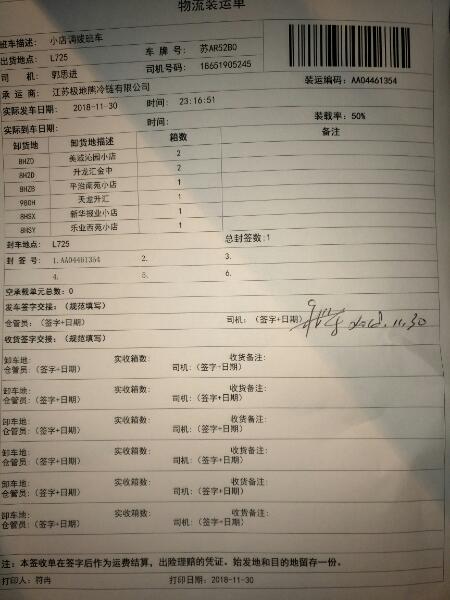 物流装运单
班车描述： 小店调拨班车
出货地点： L725 车 牌 号： 苏AR52B0
司 机： 郭思进 司机号码： 18651905245
承 运 商： 江苏极地熊冷链有限公司 装运编码：AA04461354
实际发车日期： 2018-11-30 时间： 23:16:51
实际到车日期： 时间： 装载率：50%
卸货地 卸货地描述 箱数 备注
8HZ0 美城沁园小店 2
8H2D 升龙汇金中 2
8HZB 平治南苑小店 1
980H 天龙升汇 1
8HSX 新华报业小店 1
8HSY 乐业西苑小店 1
封车地点： L725 总封签数：1
封 签 号： 1.AA04461354 2. 3.
4. 5. 6.
空承载单元总数：0
发车签字交接：（规范填写）
仓管员：（签字+日期） 司机：（签字+日期） 2018.11.30
收货签字交接：（规范填写）
卸车地： 实收箱数： 收货备注：
仓管员：（签字+日期） 司机：（签字+日期）
卸车地： 实收箱数： 收货备注：
仓管员：（签字+日期） 司机：（签字+日期）
卸车地： 实收箱数： 收货备注：
仓管员：（签字+日期） 司机：（签字+日期）
卸车地： 实收箱数： 收货备注：
仓管员：（签字+日期） 司机：（签字+日期）
卸车地： 实收箱数： 收货备注：
仓管员：（签字+日期） 司机：（签字+日期）
卸车地： 实收箱数： 收货备注：
仓管员：（签字+日期） 司机：（签字+日期）
注：本签收单在签字后作为运费结算，出险理赔的凭证。始发地和目的地留存一份。
打印人：符冉 打印日期：2018-11-30